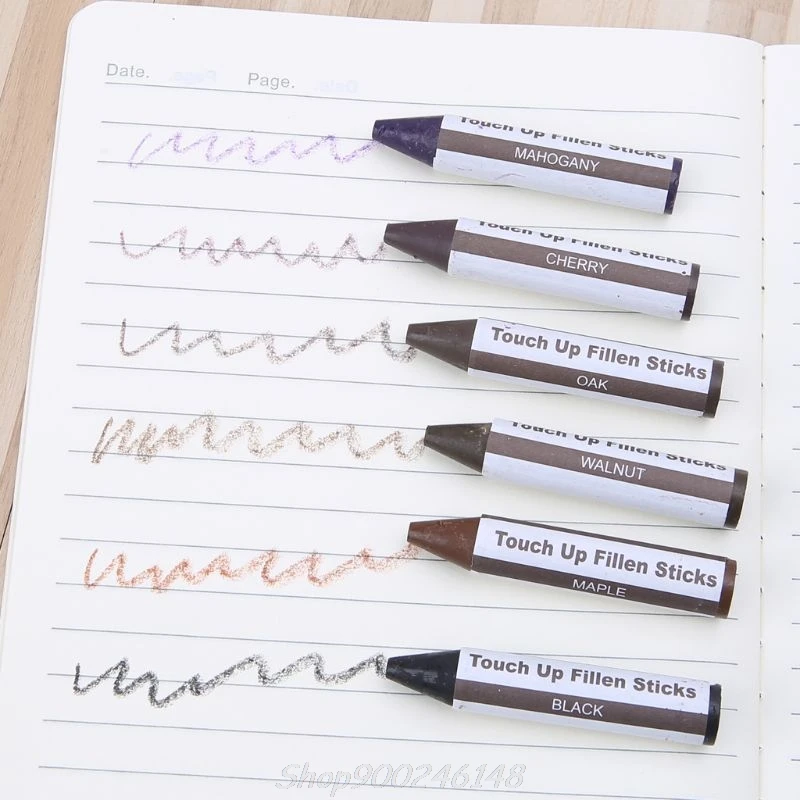 Date. Page.
Touch Up Fillen Sticks
MAHOGANY
Touch Up Fillen Sticks
CHERRY
Touch Up Fillen Sticks
OAK
Touch Up Fillen Sticks
WALNUT
Touch Up Fillen Sticks
MAPLE
Touch Up Fillen Sticks
BLACK
Shop900246148